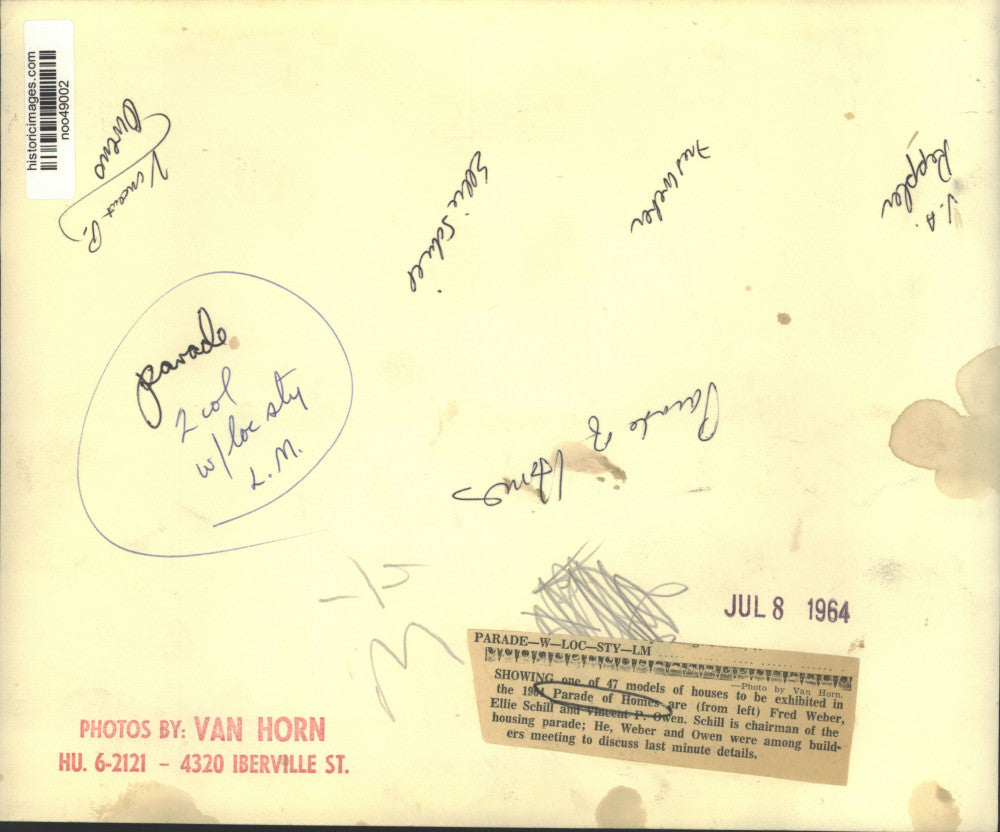 historicimages.com
noo49002
Owen
Vincent P.
Ellie Schill
Fred Weber
V. A.
Keppler
parade
2 col
w/loc sty
L.M.
Parade of
Homes
JUL 8 1964
PARADE—W—LOC—STY—LM
—Photo by Van Horn.
SHOWING one of 47 models of houses to be exhibited in
the 1964 Parade of Homes are (from left) Fred Weber,
Ellie Schill and Vincent P. Owen. Schill is chairman of the
housing parade; He, Weber and Owen were among build-
ers meeting to discuss last minute details.
PHOTOS BY: VAN HORN
HU. 6-2121 – 4320 IBERVILLE ST.